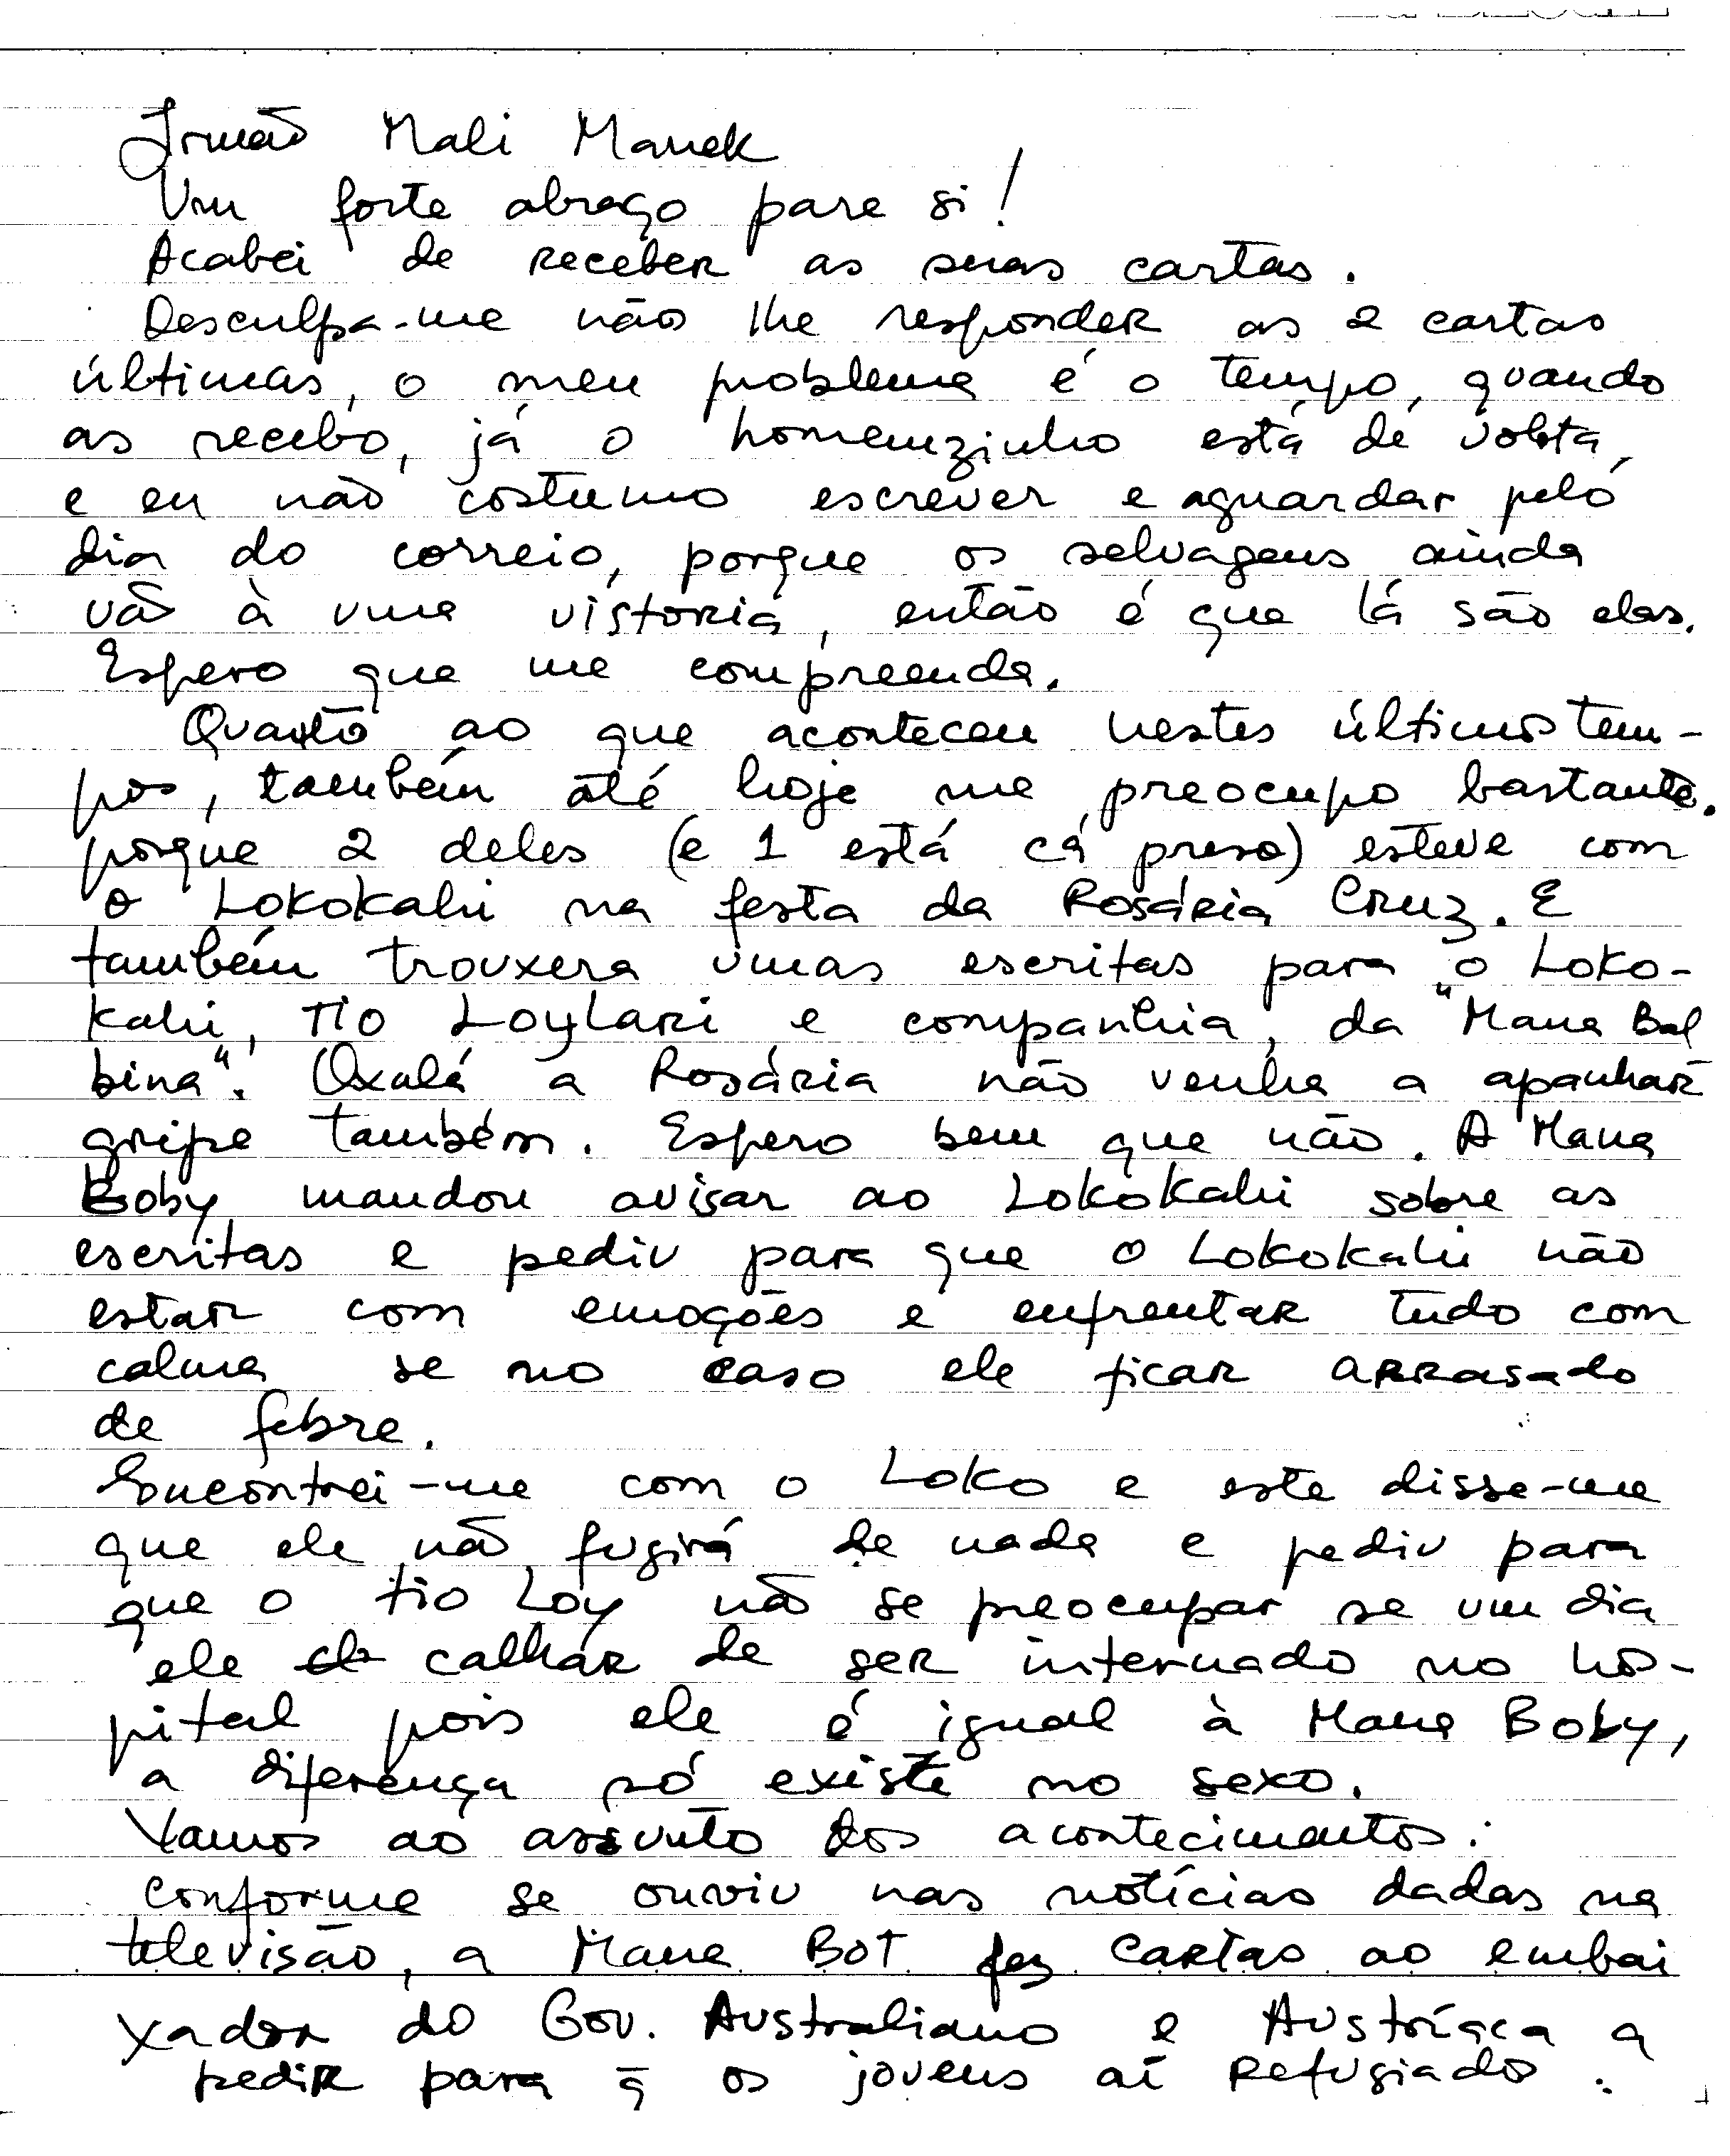 Irmão Mali Manek
Um forte abraço para si!
Acabei de receber as suas cartas.
Desculpa-me não lhe responder as 2 cartas
últimas, o meu problema é o tempo, quando
as recebo, já o homemzinho está de volta,
e eu não costumo escrever e aguardar pelo
dia do correio, porque os selvagens ainda
vão à uma vistoria, então é que lá são elas.
Espero que me compreenda.
Quanto ao que aconteceu nestes últimos tem-
pos, também até hoje me preocupo bastante.
porque 2 deles (e 1 está cá preso) esteve com
o Lokokahi na festa da Rosária Cruz. E
também trouxera umas escritas para o Loko-
kahi, Tio Loylari e companhia, da "Mana Bal
bina". Oxalá a Rosária não venha a apanhar
gripe também. Espero bem que não. A Mana
Boby mandou avisar ao Lokokahi sobre as
escritas e pediu para que o Lokokahi não
estar com emoções e enfrentar tudo com
calma se no caso ele ficar arrasado
de febre.
Encontrei-me com o Loko e este disse-me
que ele não fugirá de nada e pediu para
que o tio Loy não se preocupar se um dia
ele calhar de ser internado no hos-
pital pois ele é igual à Mana Boby,
a diferença só existe no sexo.
Vamos ao assunto dos acontecimentos:
Conforme se ouviu nas notícias dadas na
televisão, a Mana BOT fez cartas ao embai
xador do Gov. Australiano e Austríaca a
pedir para q̄ os jovens aí refugiado.